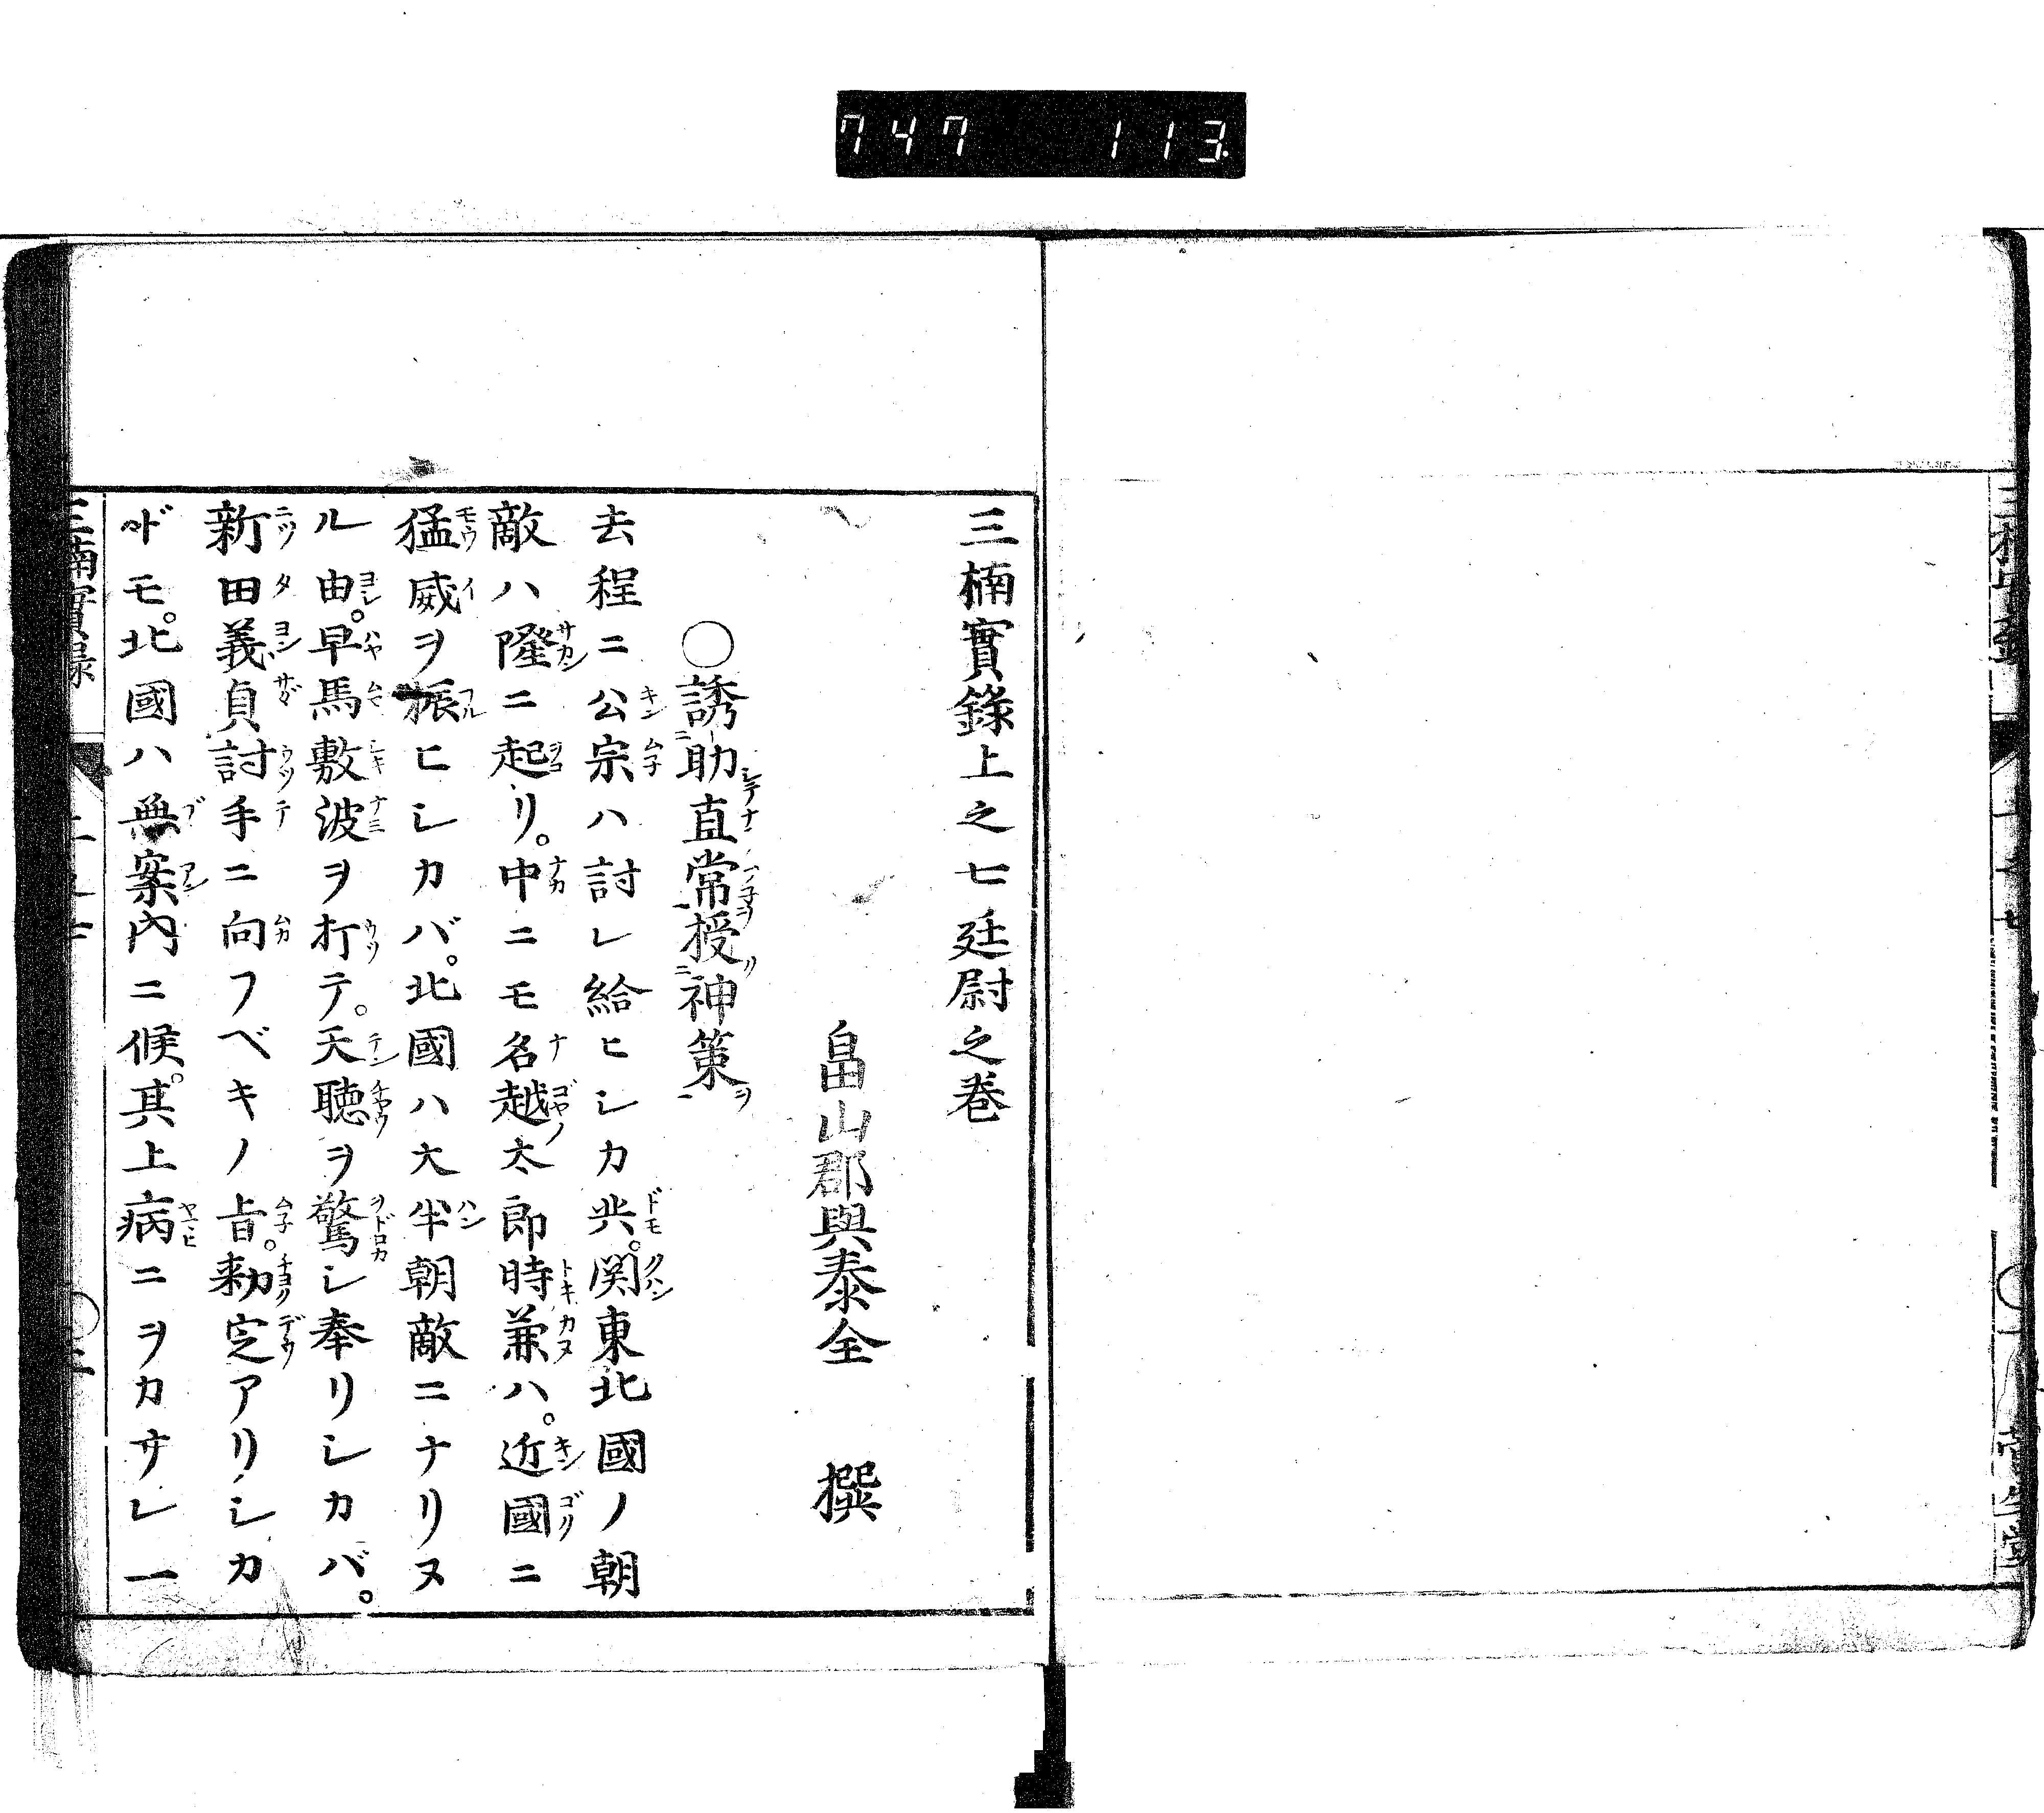 747 113
三楠實錄上之七廷尉之巻
畠山郡興泰全 撰
○誘助直常授神策
去程ニ公宗ハ討レ給ヒシカ共。関東北國ノ朝
敵ハ隆ニ起リ。中ニモ名越太郎時兼ハ。近國ニ
猛威ヲ振ヒシカバ。北國ハ大半朝敵ニナリヌ
ル由。早馬敷波ヲ打テ。天聴ヲ驚シ奉リシカバ。
新田義貞討手ニ向フベキノ旨。勅定アリシカ
ドモ。北國ハ無案内ニ候。其上病ニヲカサレ一
三楠實録